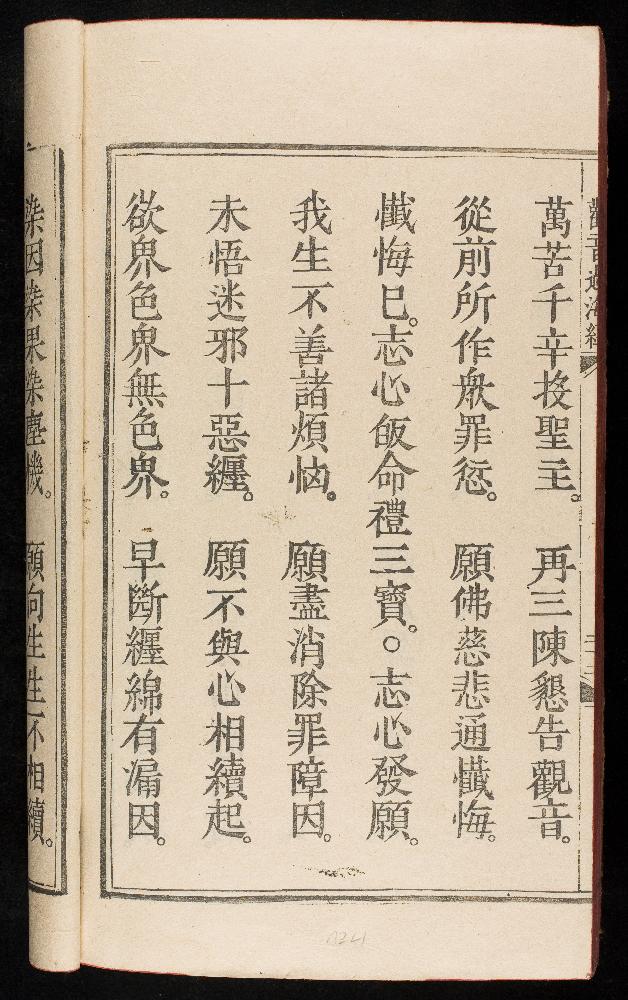 觀音過海經
萬苦千辛投聖王。 再三陳懇告觀音。
從前所作衆罪愆。 願佛慈悲通懺悔。
懺悔已。志心皈命禮三寶。○志心發願。
我生不善諸煩惱。 願盡消除罪障因。
未悟迷邪十惡纏。 願不與心相續起。
欲界色界無色界。 早斷纏綿有漏因。
染因染果染塵機。 願向生生不相續。